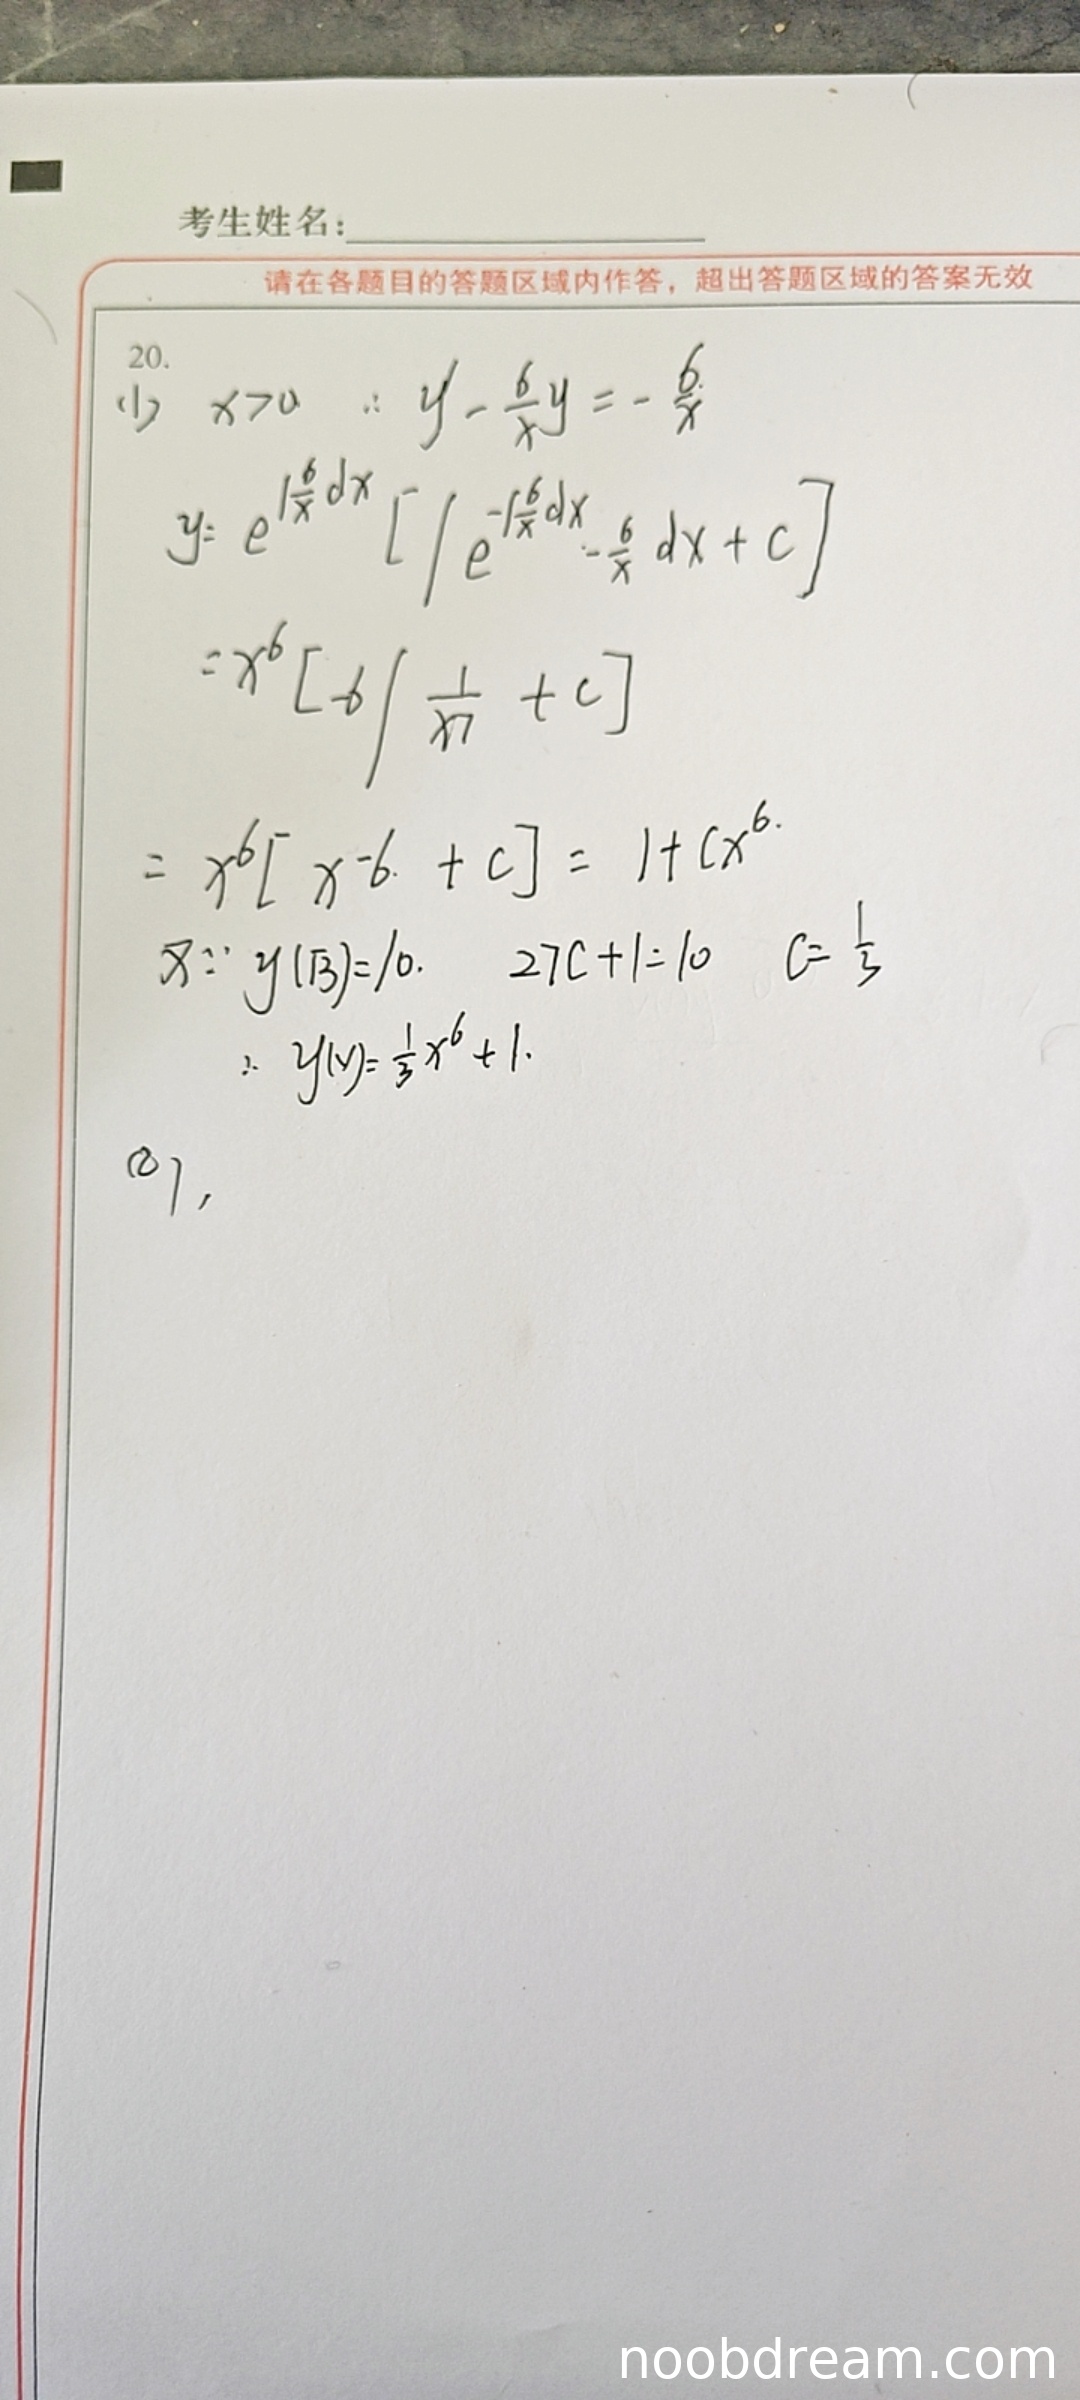 考生姓名:
请在各题目的答题区域内作答，超出答题区域的答案无效
20.
(1) x>0 ∴ y' - 6/x y = - 6/x
y= e^{∫6/x dx} [∫ e^{-∫6/x dx} · - 6/x dx + C]
= x^6 [-6∫ 1/x^7 + C]
= x^6 [x^{-6} + C] = 1 + Cx^6.
又∵ y(√3)=10. 27C+1=10 C= 1/3
∴ y(x)= 1/3 x^6 + 1.
(2) ,
noobdream.com